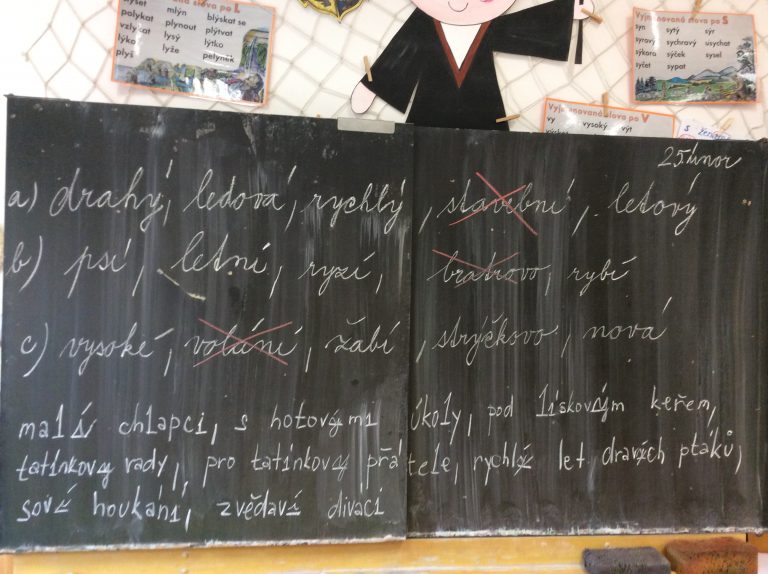 myset mlýn blýskat se
polykat plynout plýtvat
vzlykat lysý lýtko
plyš lyže pelyněk
Vyjmenovaná slova po S
syn sytý sýr
syrový sychravý usychat
sýkora sýček sysel
syčet sypat
Vyjmenovaná slova po V
vy vysoký výt
25. únor
a) drahý, ledová, rychlý, stavební, letový
b) psí, letní, ryzí, bratrovo, rybí
c) vysoké, volání, žabí, strýčkovo, nová
malí chlapci, s hotovými úkoly, pod lískovým keřem,
tatínkovy rady, pro tatínkovy přátele, rychlý let dravých ptáků,
sové houkání, zvědaví diváci